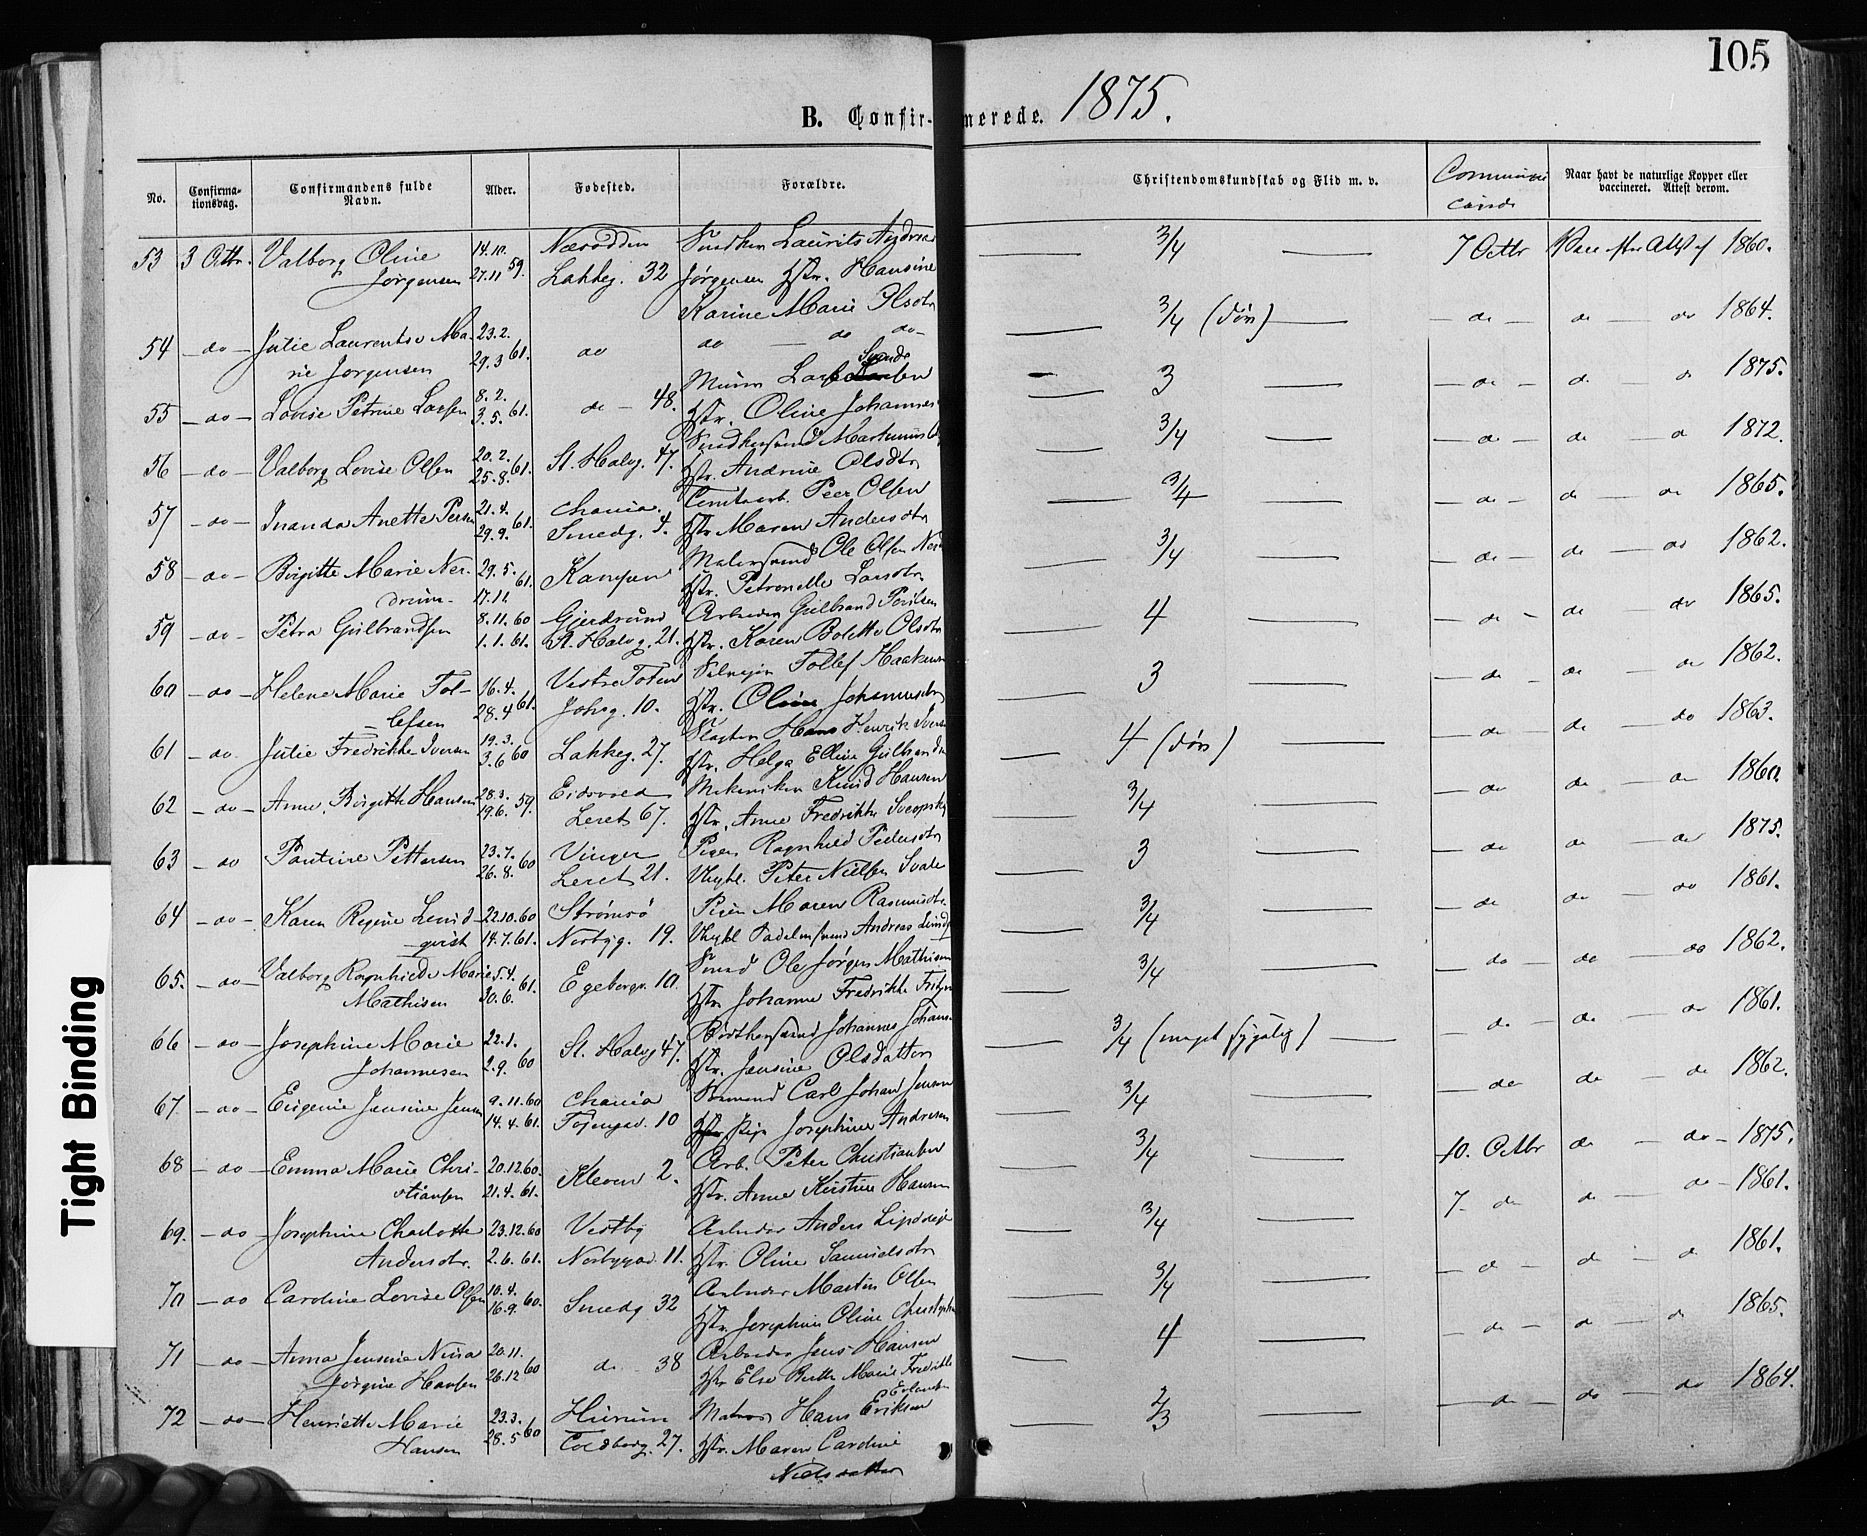 105
B. Confir-merede. 1875.
No. Confirma-tionsdag. Confirmandens fulde Navn. Alder. Fødested. Forældre. Christendomskundskab og Flid m. v. Naar havt de naturlige Kopper eller vaccineret. Attest derom.
53 3 Octbr. Valborg Oline 14.10. Næsodden Laurits Andreas 3/4 7 Octbr 1860.
Jørgensen 27.11 59. Lakkeg. 32 Jørgensen Hstr. Hansine
Karine Marie Olsdtr
54 - do - Julie Laurentse Ma- 23.2. do do - do do- 3/4 (døv) - do - do - do 1864.
rie Jørgensen 29.3 61.
55 - do - Lovise Petrine Larsen 8.2. do - 48. Murer Lars 3 - do - do - do 1875.
3.5. 61. Hstr. Oline Johannes
56 - do - Valborg Lovise Olsen 20.2. St. Halvg. 47. Snedkersvend 3/4 - do - do - do 1872.
25.8. 61. Hstr. Andrine Olsdtr
57 - do - Inanda Anette Persen 21.4. Chania. Peer Olsen 3/4 - do - do - do 1865.
29.9. 61. Smedg. 4. Hstr. Maren Andersdtr
58 - do - Birgitte Marie Ner- 29.5. Kampen Malersvend Ole Olsen 3/4 - do - do - do 1862.
drum- 17.11. 61. Hstr. Petronelle Larsdtr.
59 - do - Petra Gulbrandsen 8.11.60 Gjerdrund Arbeider Gulbrand 4 - do - do - do 1865.
1.1.61. St. Halvg. 21. Hstr. Karen Bolette Olsdtr
60 - do - Helene Marie Tol- 16.4. Vestre Toten Tollef Haakens 3 - do - do - do 1862.
lefsen 28.4 61. Johsg. 10. Hstr. Oline Johannesdtr
61 - do Julie Fredrikke Iversen 19.3. Lakkeg. 27. Slagter Hans Henrik Iversen 4 (døv) - do - do - do 1863.
3.6 60 Hstr. Helga Elline Gulbrands
62 - do - Anne Birgitte Hansen 28.3. Eidsvold Mekaniker Knud Hansen 3/4 - do do - do 1860.
19.6. 59. Leret 67. Hstr. Anne Fredrikke
63 - do Pauline Pettersen 23.7. Vinger Pigen Ragnhild Pedersdtr 3 - do do - do 1875.
26.8. 60 Leret 21. Ungkl. Peter Nielsen
64 - do - Karen Regine Lund- 22.10.60 Strømsø Pigen Maren Rasmusdtr. 3/4 - do do - do 1861.
qvist 14.7.61. Norbyg. 19. Ungkl Andreas
65. - do - Valborg Ragnhilde Marie 5.4. Egebergv. 10. Smed Ole Jørgen Mathisen 3/4 - do do - do 1862.
Mathisen 30.6. 61. Hstr. Johanne Fredrikke
66 - do - Josephine Marie 22.1. St. Halvg 47. Johannes Johans 3/4 (meget sygelig) - do - do - do 1861.
Johannesen 2.9. 60 Hstr. Jensine Olsdatter
67 - do - Eugenie Jensine Jensen 9.11.60 Chania Sømand Carl Johan Jensen 3/4 - do do - do 1862.
14.4.61. Tøjengad. 10 Pige Josephine Andresen
68 - do - Emma Marie Chri- 20.12.60 Kleven 2. Arb. Peter Christiansen 3/4 10. Octbr do - do - 1875.
stiansen 21.4.61. Hstr. Anne Kirstine Hansen
69. - do - Josephine Charlotte 23.12.60 Vestby Arbeider Anders 3/4 7. do do - do - 1861.
Andersdtr. 2.6.61. Norbygad. 11. Hstr. Oline Samuelsdtr
70 - do Caroline Lovise Olsen 10.4. Smedg 32 Arbeider Martin Olsen 3/4 - do - do - do 1861.
16.9. 60. Hstr. Josephine Oline
71 - do - Anna Jensine Nina 20.11. do - 38 Arbeider Jens Hansen 4 - do - do - do 1865.
Jørgine Hansen 26.12 60 Hstr Else Berthe Marie Fredrikke
72 - do - Henriette Marie 23.3. Hurum Matros Hans Eriksen 2/3 - do - do - do 1864.
Hansen 28.5 60 Toldbodg. 27. Hstr. Maren Caroline
Nielsdatter
Tight Binding